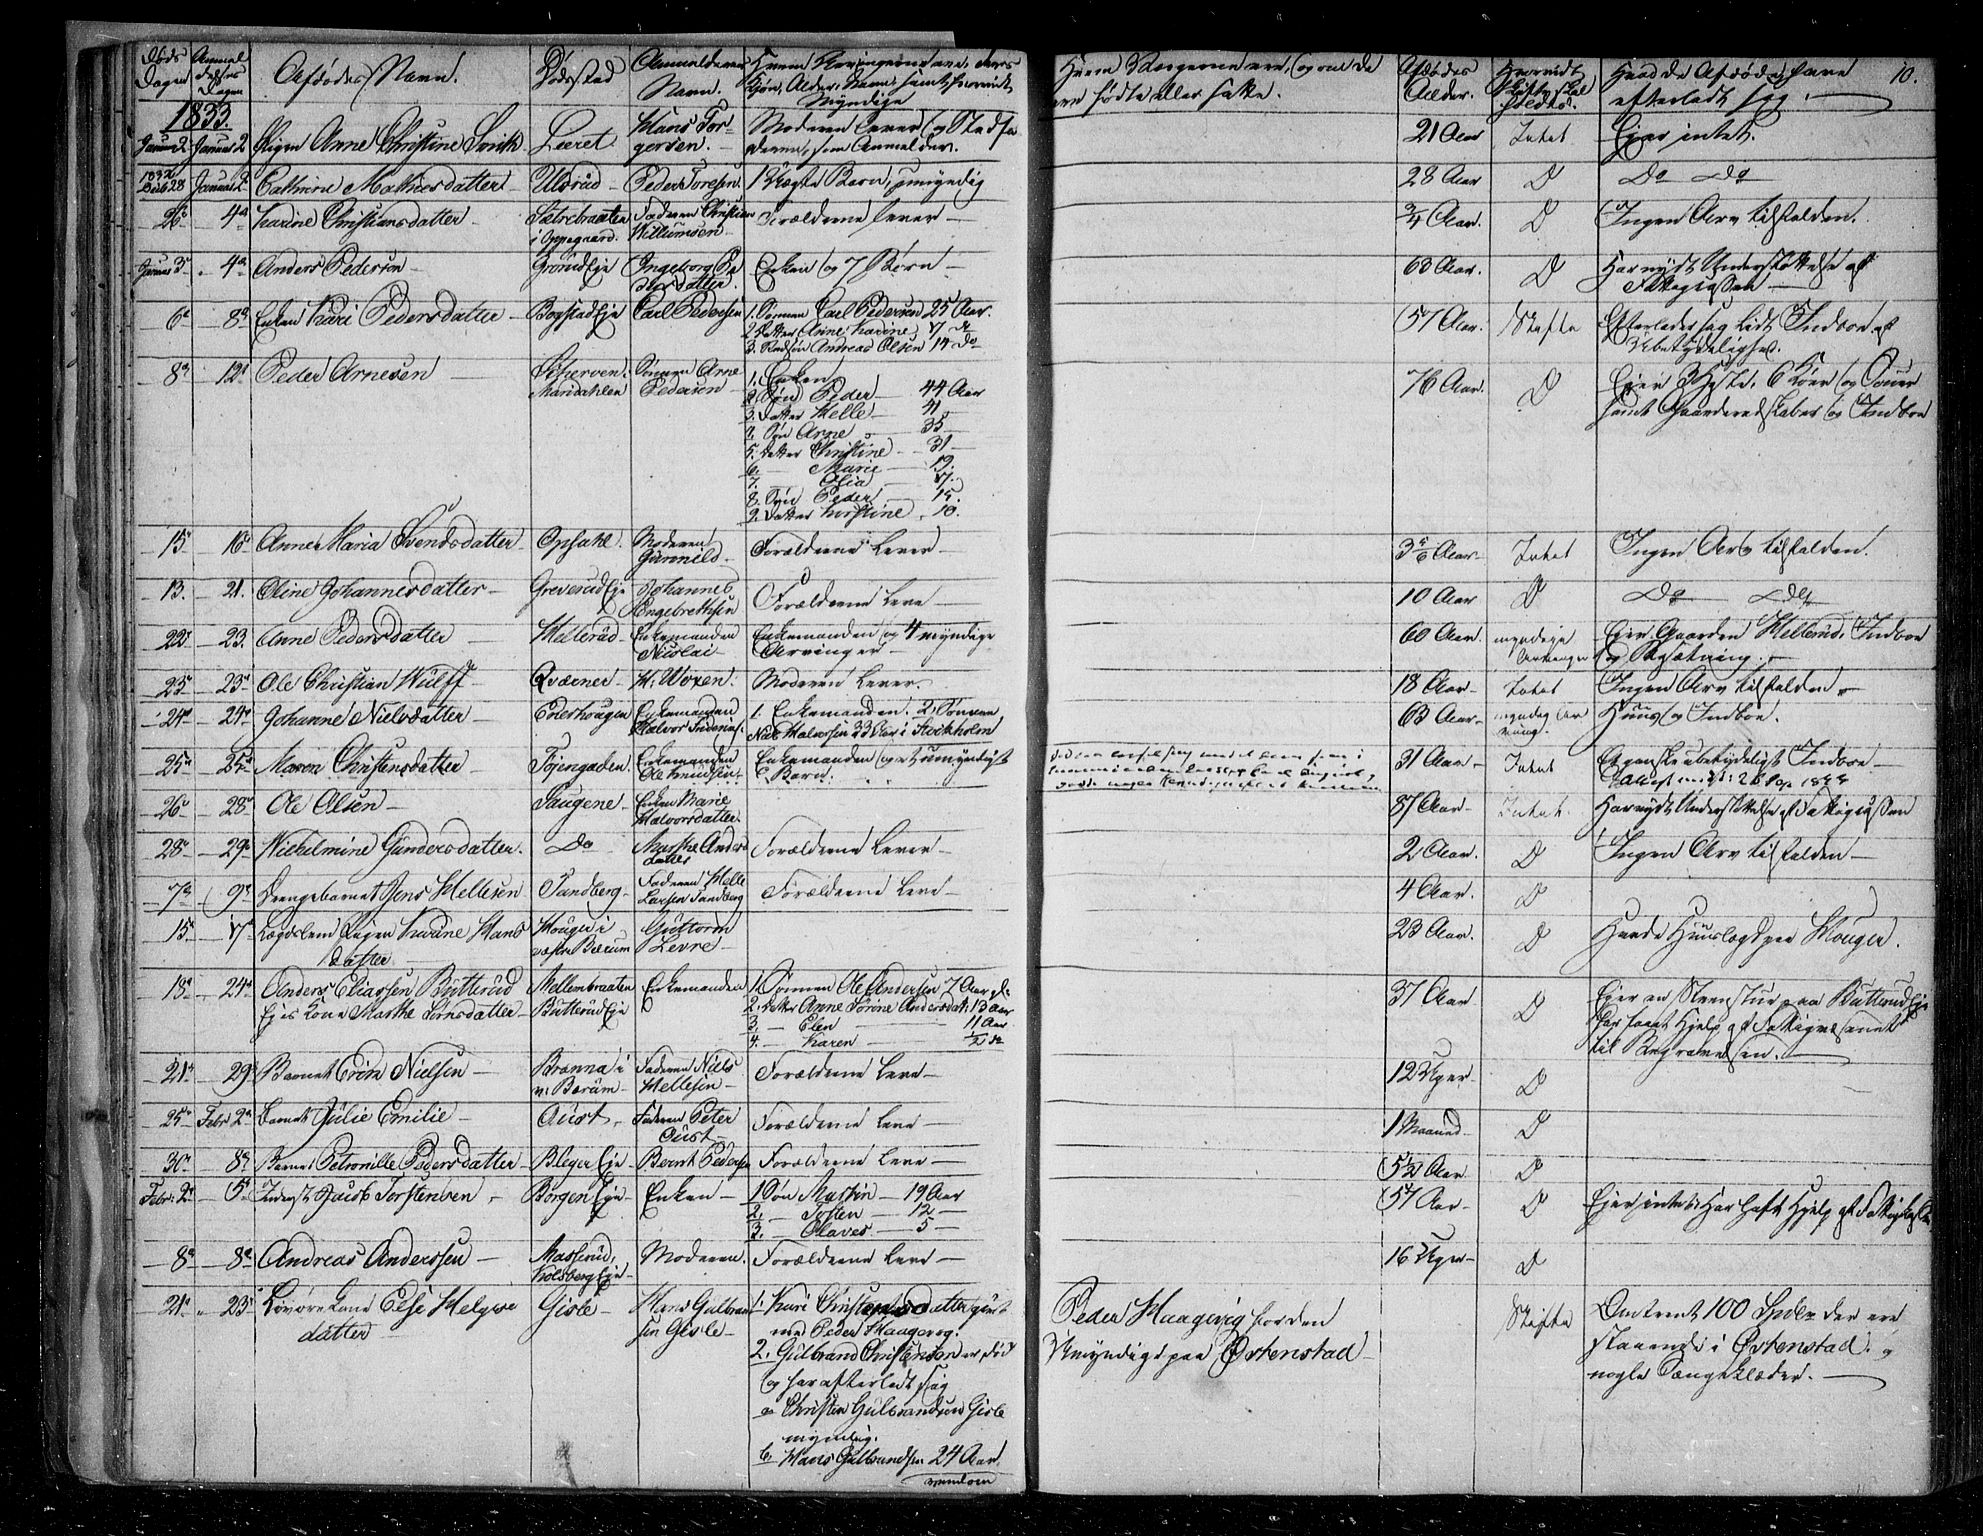 Døds Dagen
Anmeldelses Dagen
Afdødes Navn.
Dødsstad
Anmelderens Navn.
Hvem Arvingerne ere, deres Kjøn, Alder, Navn, samt hvorvidt Myndige
Hvem Værgerne ere, og om de ere fødte eller satte.
Afdødes Alder.
Hvorvidt Skifte skal holdes.
Hvad de Afdøde have efterladt sig.
10.
1833.
Januar 2 Januar 2 Pigen Anne Christine Smith Leeret Hans Torgersen. Moderen lever og Stedfaderen, som Anmelder. 21 Aar Intet Ejer intet.
1832 Decb 28 Januar 2 Cathrine Mathiesdatter Ulsrud Peder Toresen. 1 Ægte Barn, umyndig 28 Aar D Do Do
26 4 Karine Christiansdatter Sætrebraaten i Oppegaard. Faderen Christian Willumsen Forældrene lever 3/4 Aar. D Ingen Arv tilfalden.
Januar 3 4 Anders Pedersen Grorud Eje Ingeborg Pedersdatter. Enken og 7 Børn 63 Aar. D Har nydt Understøttelse af Fattigkassen
6 8 Enken Kari Pedersdatter Bogstad Eje Carl Pedersen 1. Sønnen Carl Pedersen 25 Aar.
2. Datter Anne Karine 17 do
3. Andreas Olsen 14 do
57 Aar. Skifte Efterlader sig lidt Indboe af Ubetydelighed.
8 12 Peder Arnesen Skjerven. Maridahlen Sønnen Arne Pedersen 1. Enken
2. Søn Peder 44 Aar
3. Datter Helle 41
4. Søn Arne 35
5. Datter Christine 31
6. Marie 19.
7. Olia 17.
8. Søn Peder 15.
9. Datter Kirstine 10.
76 Aar. D Ejer 3 Heste, 6 Køer og Souer samt Gaardsredskaber og Indboe
15 16 Anne Maria Svendsdatter Opsahl. Moderen Gunnild Forældrene lever 3 5/6 Aar Intet Ingen Arv tilfalden.
13. 21. Oline Johannesdatter Greverud Eje Johannes Engebrethsen Forældrene leve 10 Aar D Do Do
22 23. Anne Pedersdatter Hellerud Enkemanden Nicolai Enkemanden og 4 myndige Arvinger 60 Aar. myndige Arvinger Ejer Gaarden Hellerud, Indboe og Besætning.
23 23 Ole Christian Wulff Qværner H. Woxen. Moderen lever. 18 Aar Intet Ingen Arv tilfalden
24 24 Johanne Nielsdatter Enerhougen Enkemanden Halvor 1. Enkemanden. 2. Sønnen Niels Halvorsen 33 Aar i Stockholm 63 Aar myndig Arving. Huus og Indboe.
25 25 Maren Christensdatter Tøiengaden. Enkemanden Ole Knudsen. Enkemanden og et umyndigt Barn. 31 Aar Intet Aganske ubetydeligt Indboe
26 28 Ole Olsen Saugene Enken Marie Halvorsdatter. 87 Aar Intet. Har nydt Understøttelse af Fattigkassen
28 29 Wilhelmine Gundersdatter. Do Marthe Andersdatter Forældrene lever 2 Aar. D Ingen Arv tilfalden
7 9 Drengebarnet Jens Hellesen Sandberg Faderen Helle Larsen Sandberg Forældrene leve 4 Aar. D
15 17 Lægdslem Pigen Karine Hansdatter Houger i vestre Bærum Guttorm Levre 23 Aar. D Havde Huuslægd paa Houger.
18 24 Anders Eliassen Butterud Ejes Kone Marthe Simsdatter Mellembraaten Butterud Eje Enkemanden 1. Sønnen Ole Andersen 7 Aar gl.
2. Datter Anne Sørine Andersdat. 13 Aar
3. Elen 11 Aar
4. Karen 1/2 do
37 Aar D Ejer en Steenstue paa Butterud Eje Har havt Hjelp af Fattigvæsenet til Begravelsen.
21 29 Barnet Erich Nielsen Brænna i v. Bærum Faderen Niels Hellesen Forældrene leve 12 Uger D
25 Febr 2 Barnet Julie Emilie Aust Faderen Peter Aust Forældrene leve 1 Maaned D
30 8 Barnet Petronille Pedersdatter Bleger Eje Bernt Pedersen Forældrene leve 5 1/2 Aar D
Febr: 2 5 Inderst Jacob Torstensen Borgen Eje Enken 1 Søn Martin 19 Aar
2. Tosten 12
3. Olaves 5
57 Aar D Ejer intet. Har haft Hjelp af Fattigkassen
8 8 Andreas Andersen Kolsberg Eje Moderen. Forældrene leve 16 Uger D
21 23 Kone Else Helgesdatter Gisle Hans Gulbrandsen Gisle 1. Kari Christensdatter givt med Peder Haagevig.
2. Gulbrand Christensen er død og har efterladt sig
a Christen Gulbrandsen Gisle myndig.
b. Hans Gulbrandsen 24 Aar
Peder Haagevig for den Umyndige paa Østenstad
Skifte Omtrent 100 Spdlr der ere staaende i Østenstad og nogle Sengeklæder.